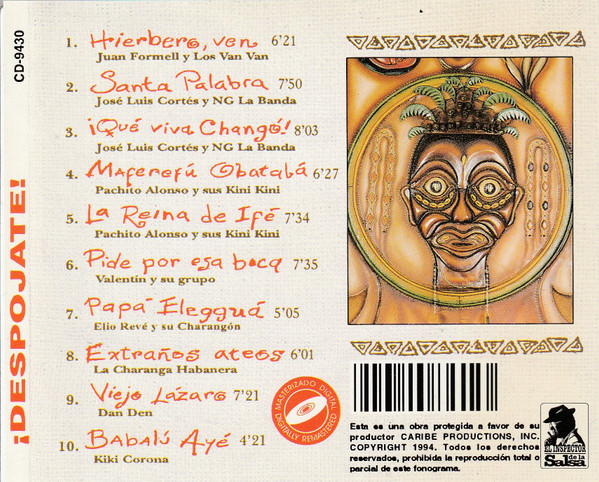 CD-9430
¡DESPOJATE!
1. Hierbero, ven 6'21
Juan Formell y Los Van Van
2. Santa Palabra 7'50
José Luis Cortés y NG La Banda
3. ¡Qué viva Changó! 8'03
José Luis Cortés y NG La Banda
4. Maferefú Obatalá 6'27
Pachito Alonso y sus Kini Kini
5. La Reina de Ifé 7'34
Pachito Alonso y sus Kini Kini
6. Pide por esa boca 7'35
Valentín y su grupo
7. Papá Eleggua 5'05
Elio Revé y su Charangón
8. Extraños ateos 6'01
La Charanga Habanera
9. Viejo Lázaro 7'21
Dan Den
10. Babalú Ayé 4'21
Kiki Corona
MASTERIZADO DIGITAL
DIGITALLY REMASTERED
Esta es una obra protegida a favor de su
productor CARIBE PRODUCTIONS, INC.
COPYRIGHT 1994. Todos los derechos
reservados, prohibida la reproducción total o
parcial de este fonograma.
EL INSPECTOR
de la
Salsa